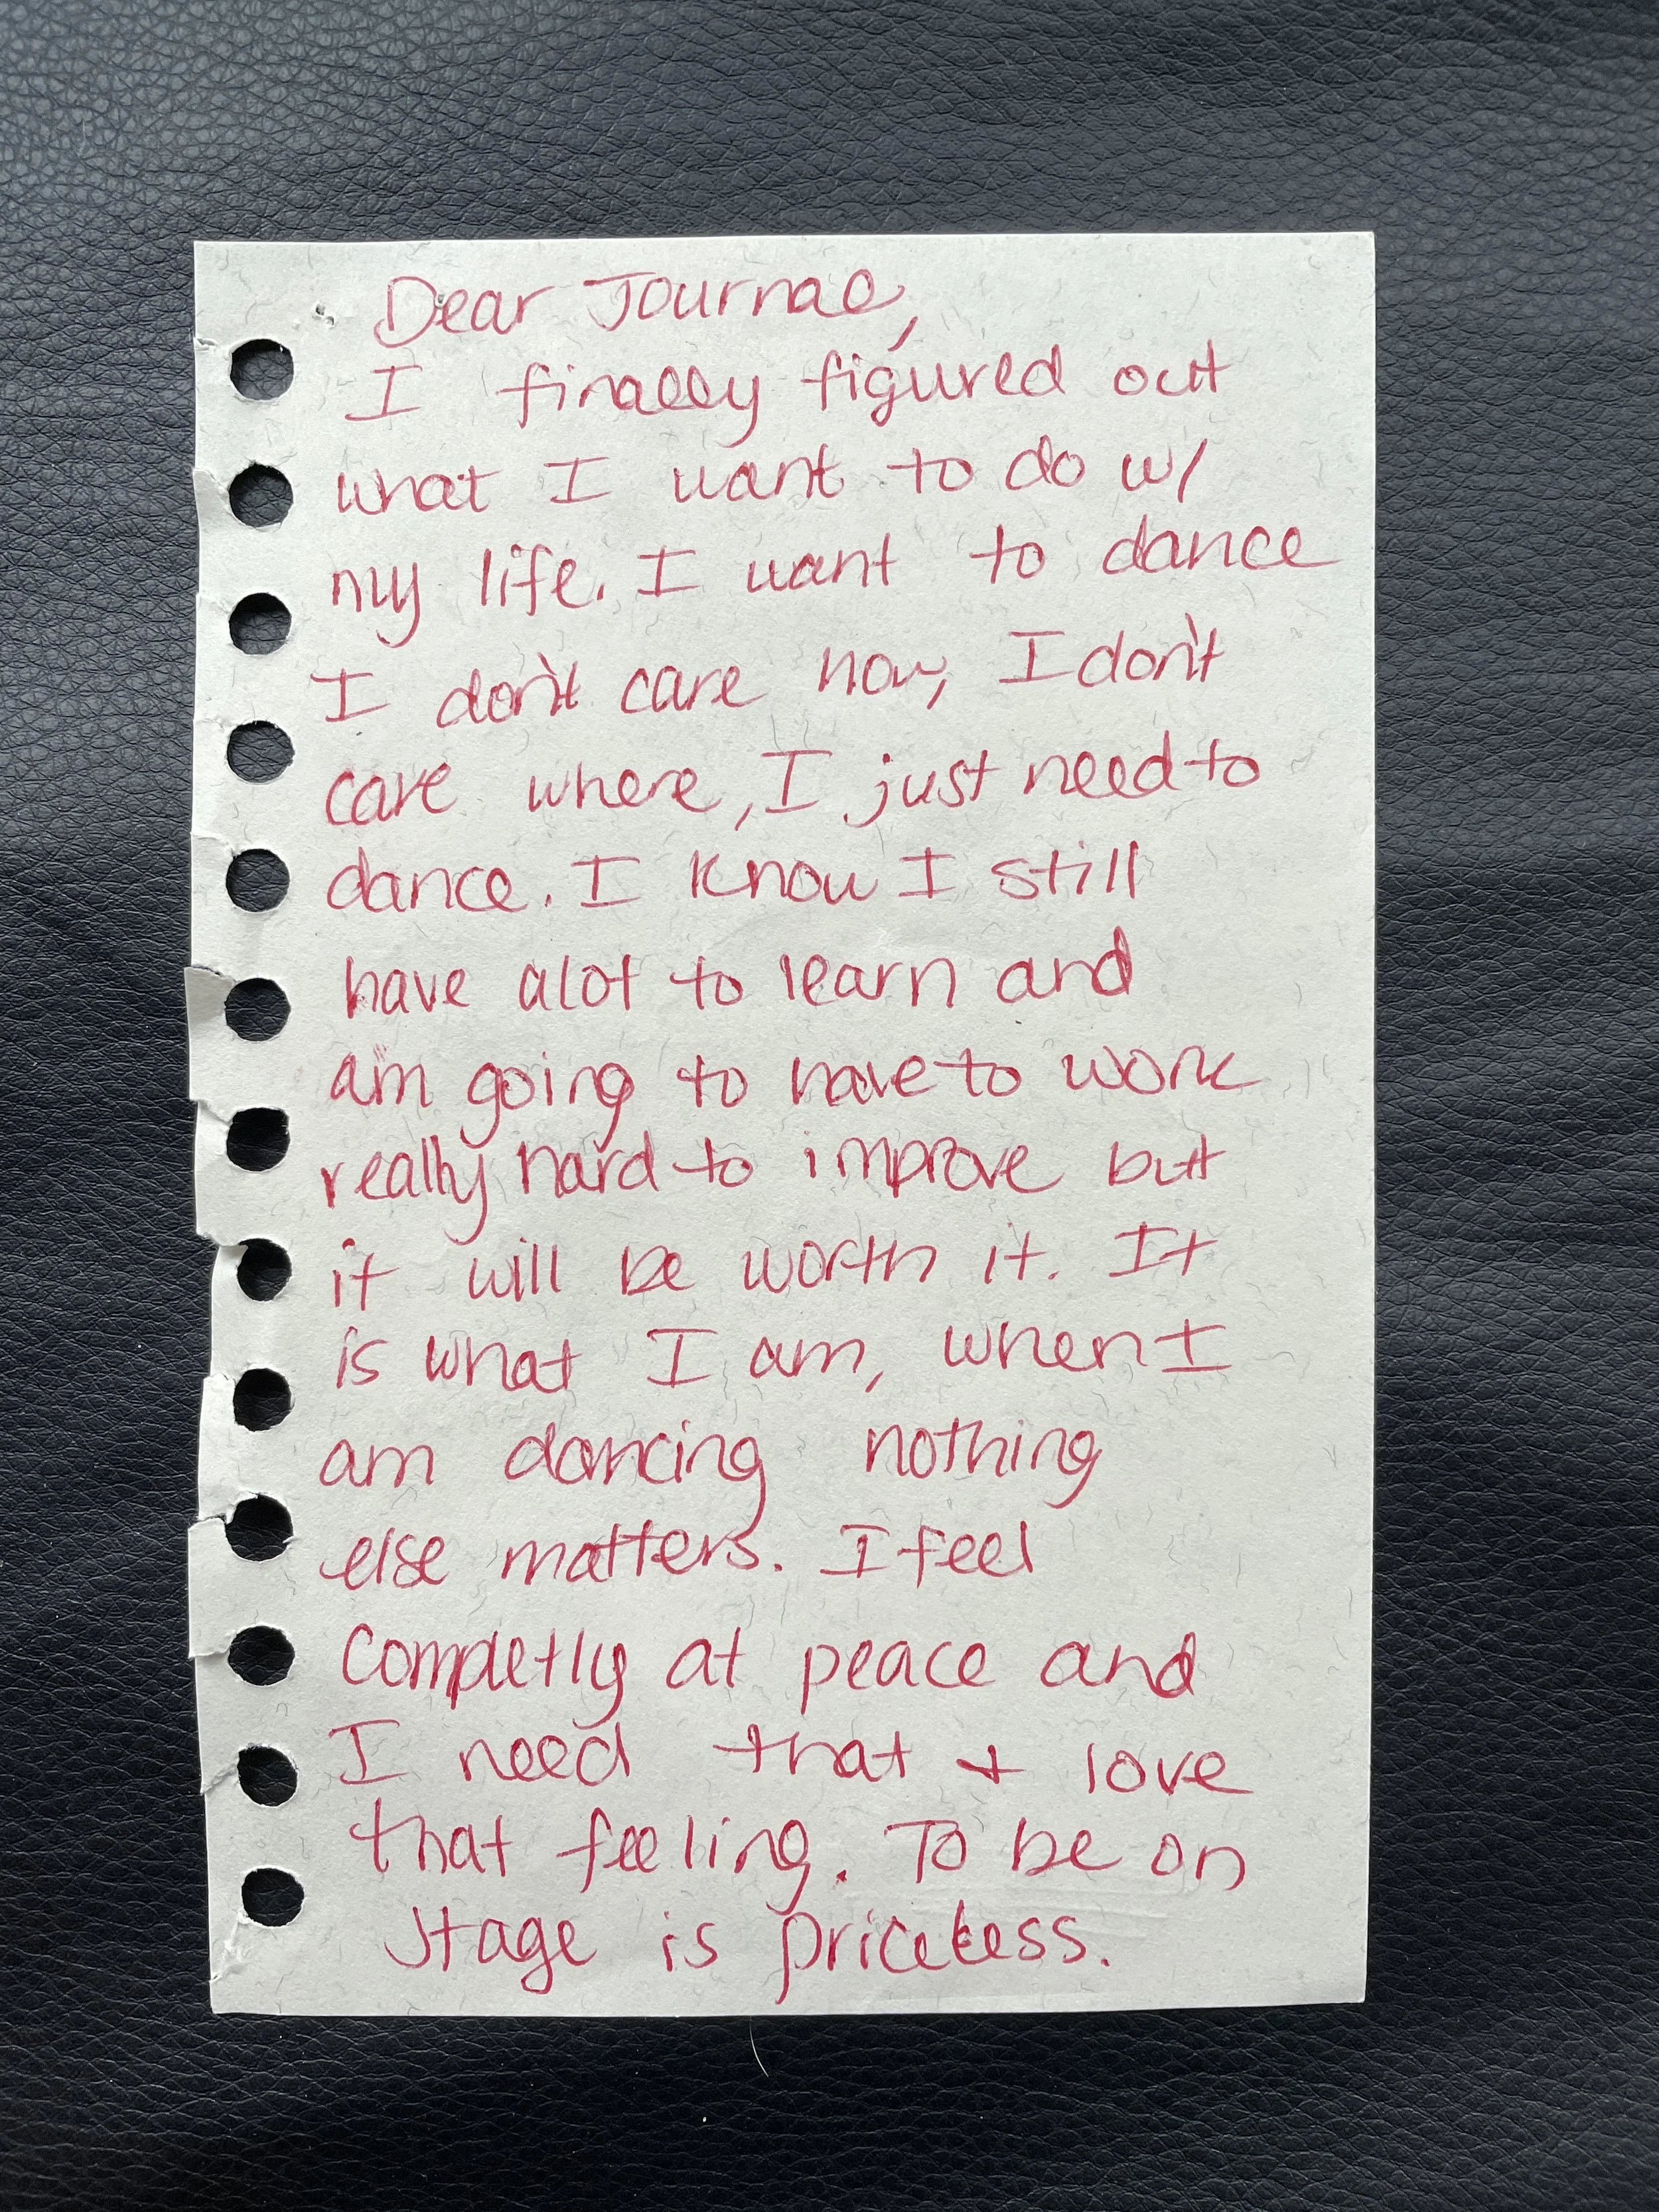 Dear Journal,
I finally figured out
what I want to do w/
my life. I want to dance
I don't care how, I don't
care where, I just need to
dance. I know I still
have alot to learn and
am going to have to work
really hard to improve but
it will be worth it. It
is what I am, when I
am dancing nothing
else matters. I feel
Completly at peace and
I need that + love
that feeling. To be on
stage is priceless.